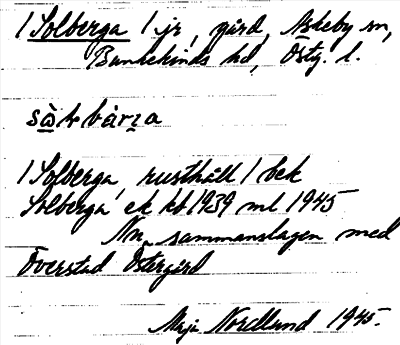 1 Solberga 1 jr, gård, Askeby sn,
Bankekinds hd, Östg. l.
1 Solberga, rusthåll 1 bek
Solberga ek kb 1939 ml 1945
Nu sammanslagen med
Överstad Östergård
Maja Nordlund 1945.